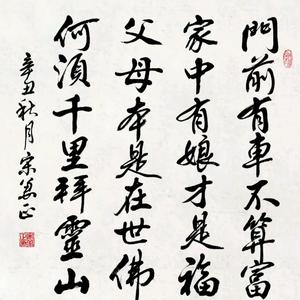 門前有車不算富
家中有娘才是福
父母本是在世佛
何須千里拜靈山
辛丑秋月宗